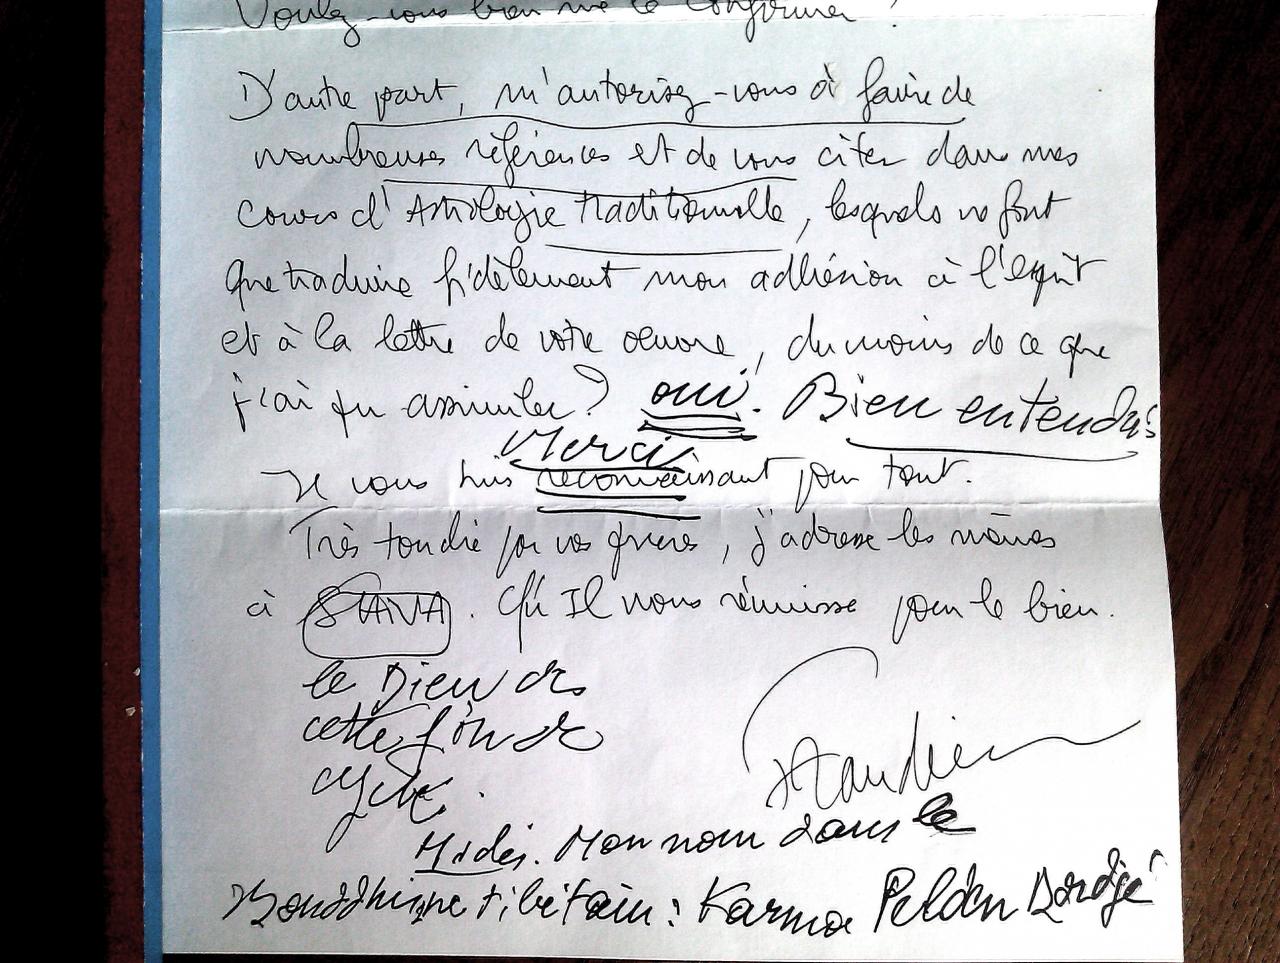 Voulez-vous bien me le confirmer ?
D'autre part, m'autorisez-vous à faire de
nombreuses références et de vous citer dans mes
cours d'Astrologie traditionnelle, lesquels ne font
que traduire fidèlement mon adhésion à l'esprit
et à la lettre de votre oeuvre, du moins de ce que
j'ai pu assimiler ? oui. Bien entendu!
Merci
Je vous suis reconnaissant pour tout.
Très touché par vos prières, j'adresse les mêmes
à SHIVA. Qu'Il nous réunisse pour le bien.
le Dieu de
cette fin de
cycle.
Mon nom dans le
Bouddhisme tibétain : Karma Pelden Dordjé